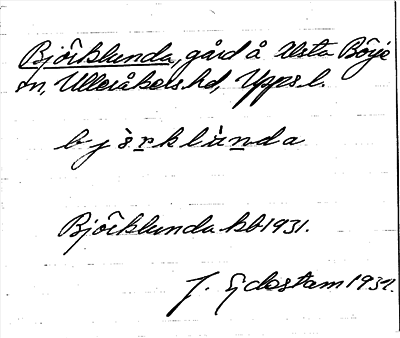 Björklunda, gård å Alsta Börje
sn, Ulleråkers hd, Upps l.
bjö̀rklùnda
Björklunda kb 1931.
J. Ejdestam 1937.